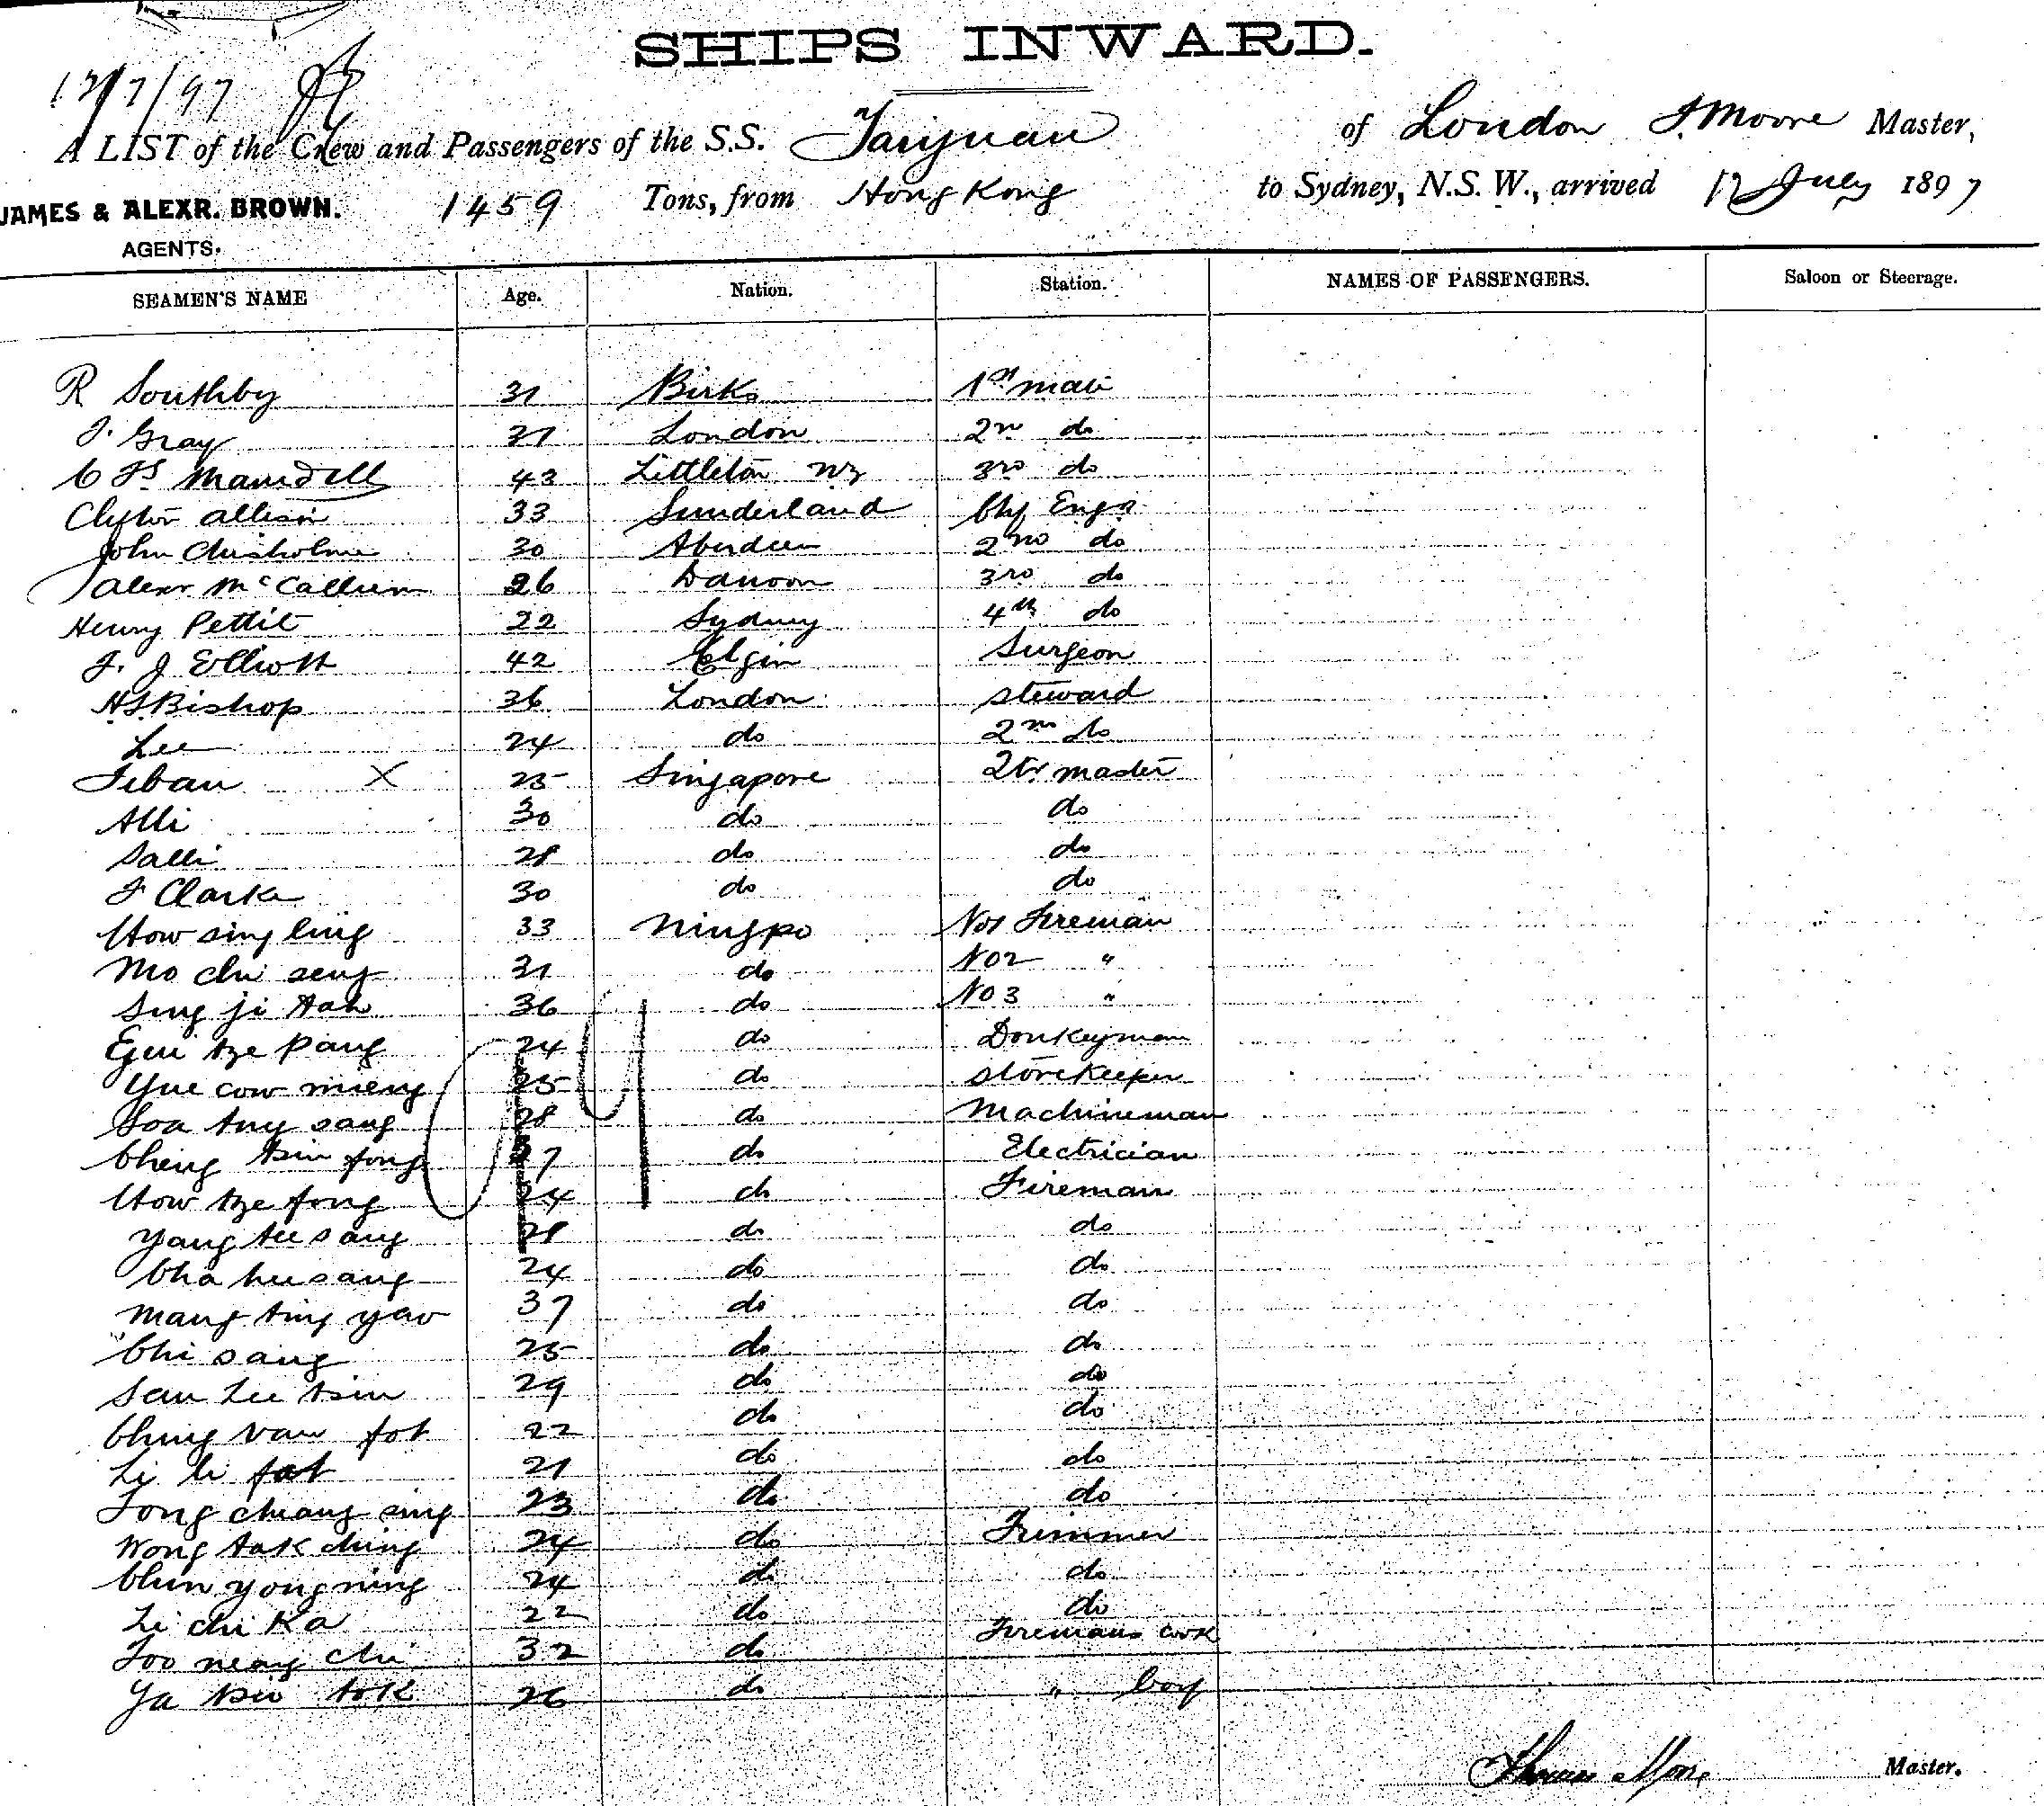 SHIPS INWARD.
12/7/97
A LIST of the Crew and Passengers of the S.S. Taiyuan of London T. Moore Master,
JAMES & ALEXR. BROWN. 1459 Tons, from Hong Kong to Sydney, N.S.W., arrived 12 July 1897
AGENTS.
SEAMEN'S NAME Age. Nation. Station. NAMES OF PASSENGERS. Saloon or Steerage.
R Southby 31 Birks 1st mate
J. Gray 31 London 2nd do
43 Littleton NZ 3rd do
Clifton Allison 33 Sunderland Chf Engr
John Chisholme 30 Aberdeen 2nd do
Alexr McCallum 26 Danoon 3rd do
Henry Pettit 22 Sydney 4th do
J. J Elliott 42 Elgin Surgeon
HS Bishop 36 London steward
Lee 24 do 2nd do
Seban X 25 Singapore Qtr master
Alli 30 do do
Salli 28 do do
J Clarke 30 do do
How sing ling 33 Ningpo No1 Fireman
Mo chi seng 31 do No2 "
Sing ji tah 36 do No3 "
tze pang 24 do Donkeyman
Yue cow mieng 25 do storekeeper
Soa tny sang 28 do Machineman
Cheng tsin fong 27 do Electrician
How tze fong 24 do Fireman
Yang tee sang 28 do do
Cha hee sang 24 do do
Mang ting yao 37 do do
Chi sang 25 do do
San Lee tsin 29 do do
Ching van fot 22 do do
Li li fat 21 do do
Tong chiang sing 23 do do
Wong tak ching 24 do Trimmer
Chin yong ning 24 do do
Li chi Ka 22 do do
Foo neang chi 32 do Firemans cook
Ya tsiu tok 26 do " boy
Thomas Moore Master.